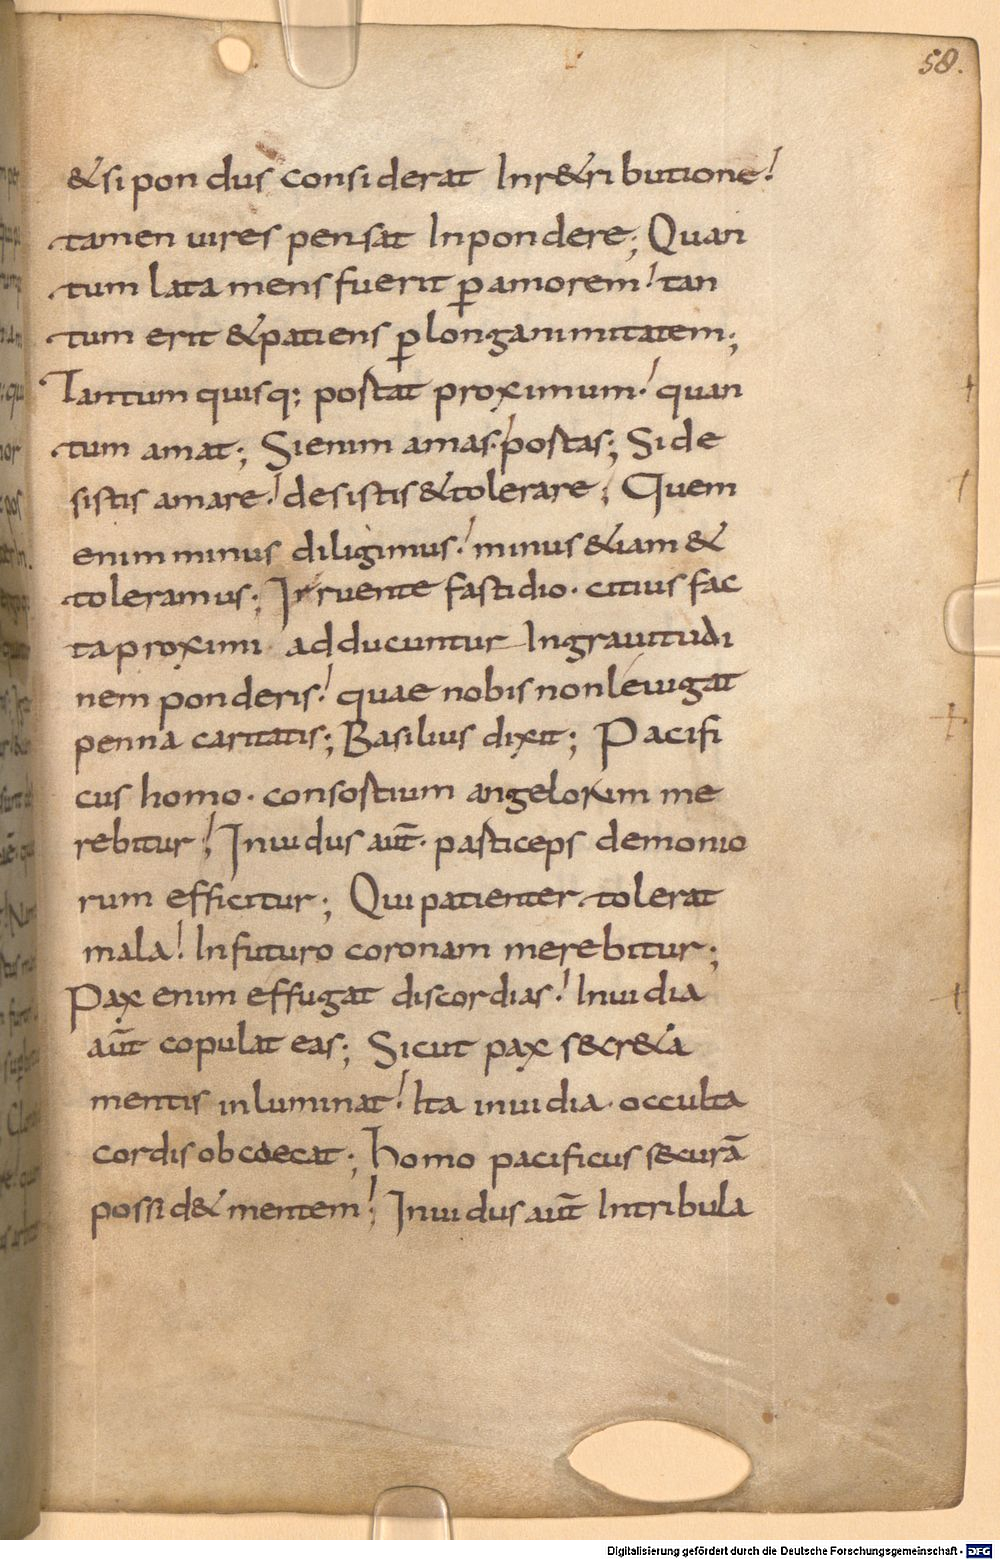 58.
& si pondus considerat Inr&ributione!
tamen uires pensat Inpondere; Quan
tum lata mens fuerit ꝑ amorem! tan
tum erit & patiens ꝑ longanimitatem;
Tantum quisq; portat proximum! quan
tum amat; Si enim amas! portas; Si de
sistis amare! desistis & tolerare; Quem
enim minus diligimus! minus &iam &
toleramus; Irruente fastidio · citius fac
ta proximi adducuntur Ingrauitudi
nem ponderis! quae nobis non leuigat
penna caritatis; Basilius dixit; Pacifi
cus homo · consortium angelorum me
rebitur! Inuidus aut̄ · particeps demonio
rum efficitur; Qui patienter tolerat
mala! In futuro coronam merebitur;
Pax enim effugat discordias! Inuidia
aut̄ copulat eas; Sicut pax s&cr&a
mentis inluminat! Ita inuidia · occulta
cordis obcaecat; homo pacificus s&curā
possid& mentem! Inuidus aut̄ Intribula
Digitalisierung gefördert durch die Deutsche Forschungsgemeinschaft - DFG